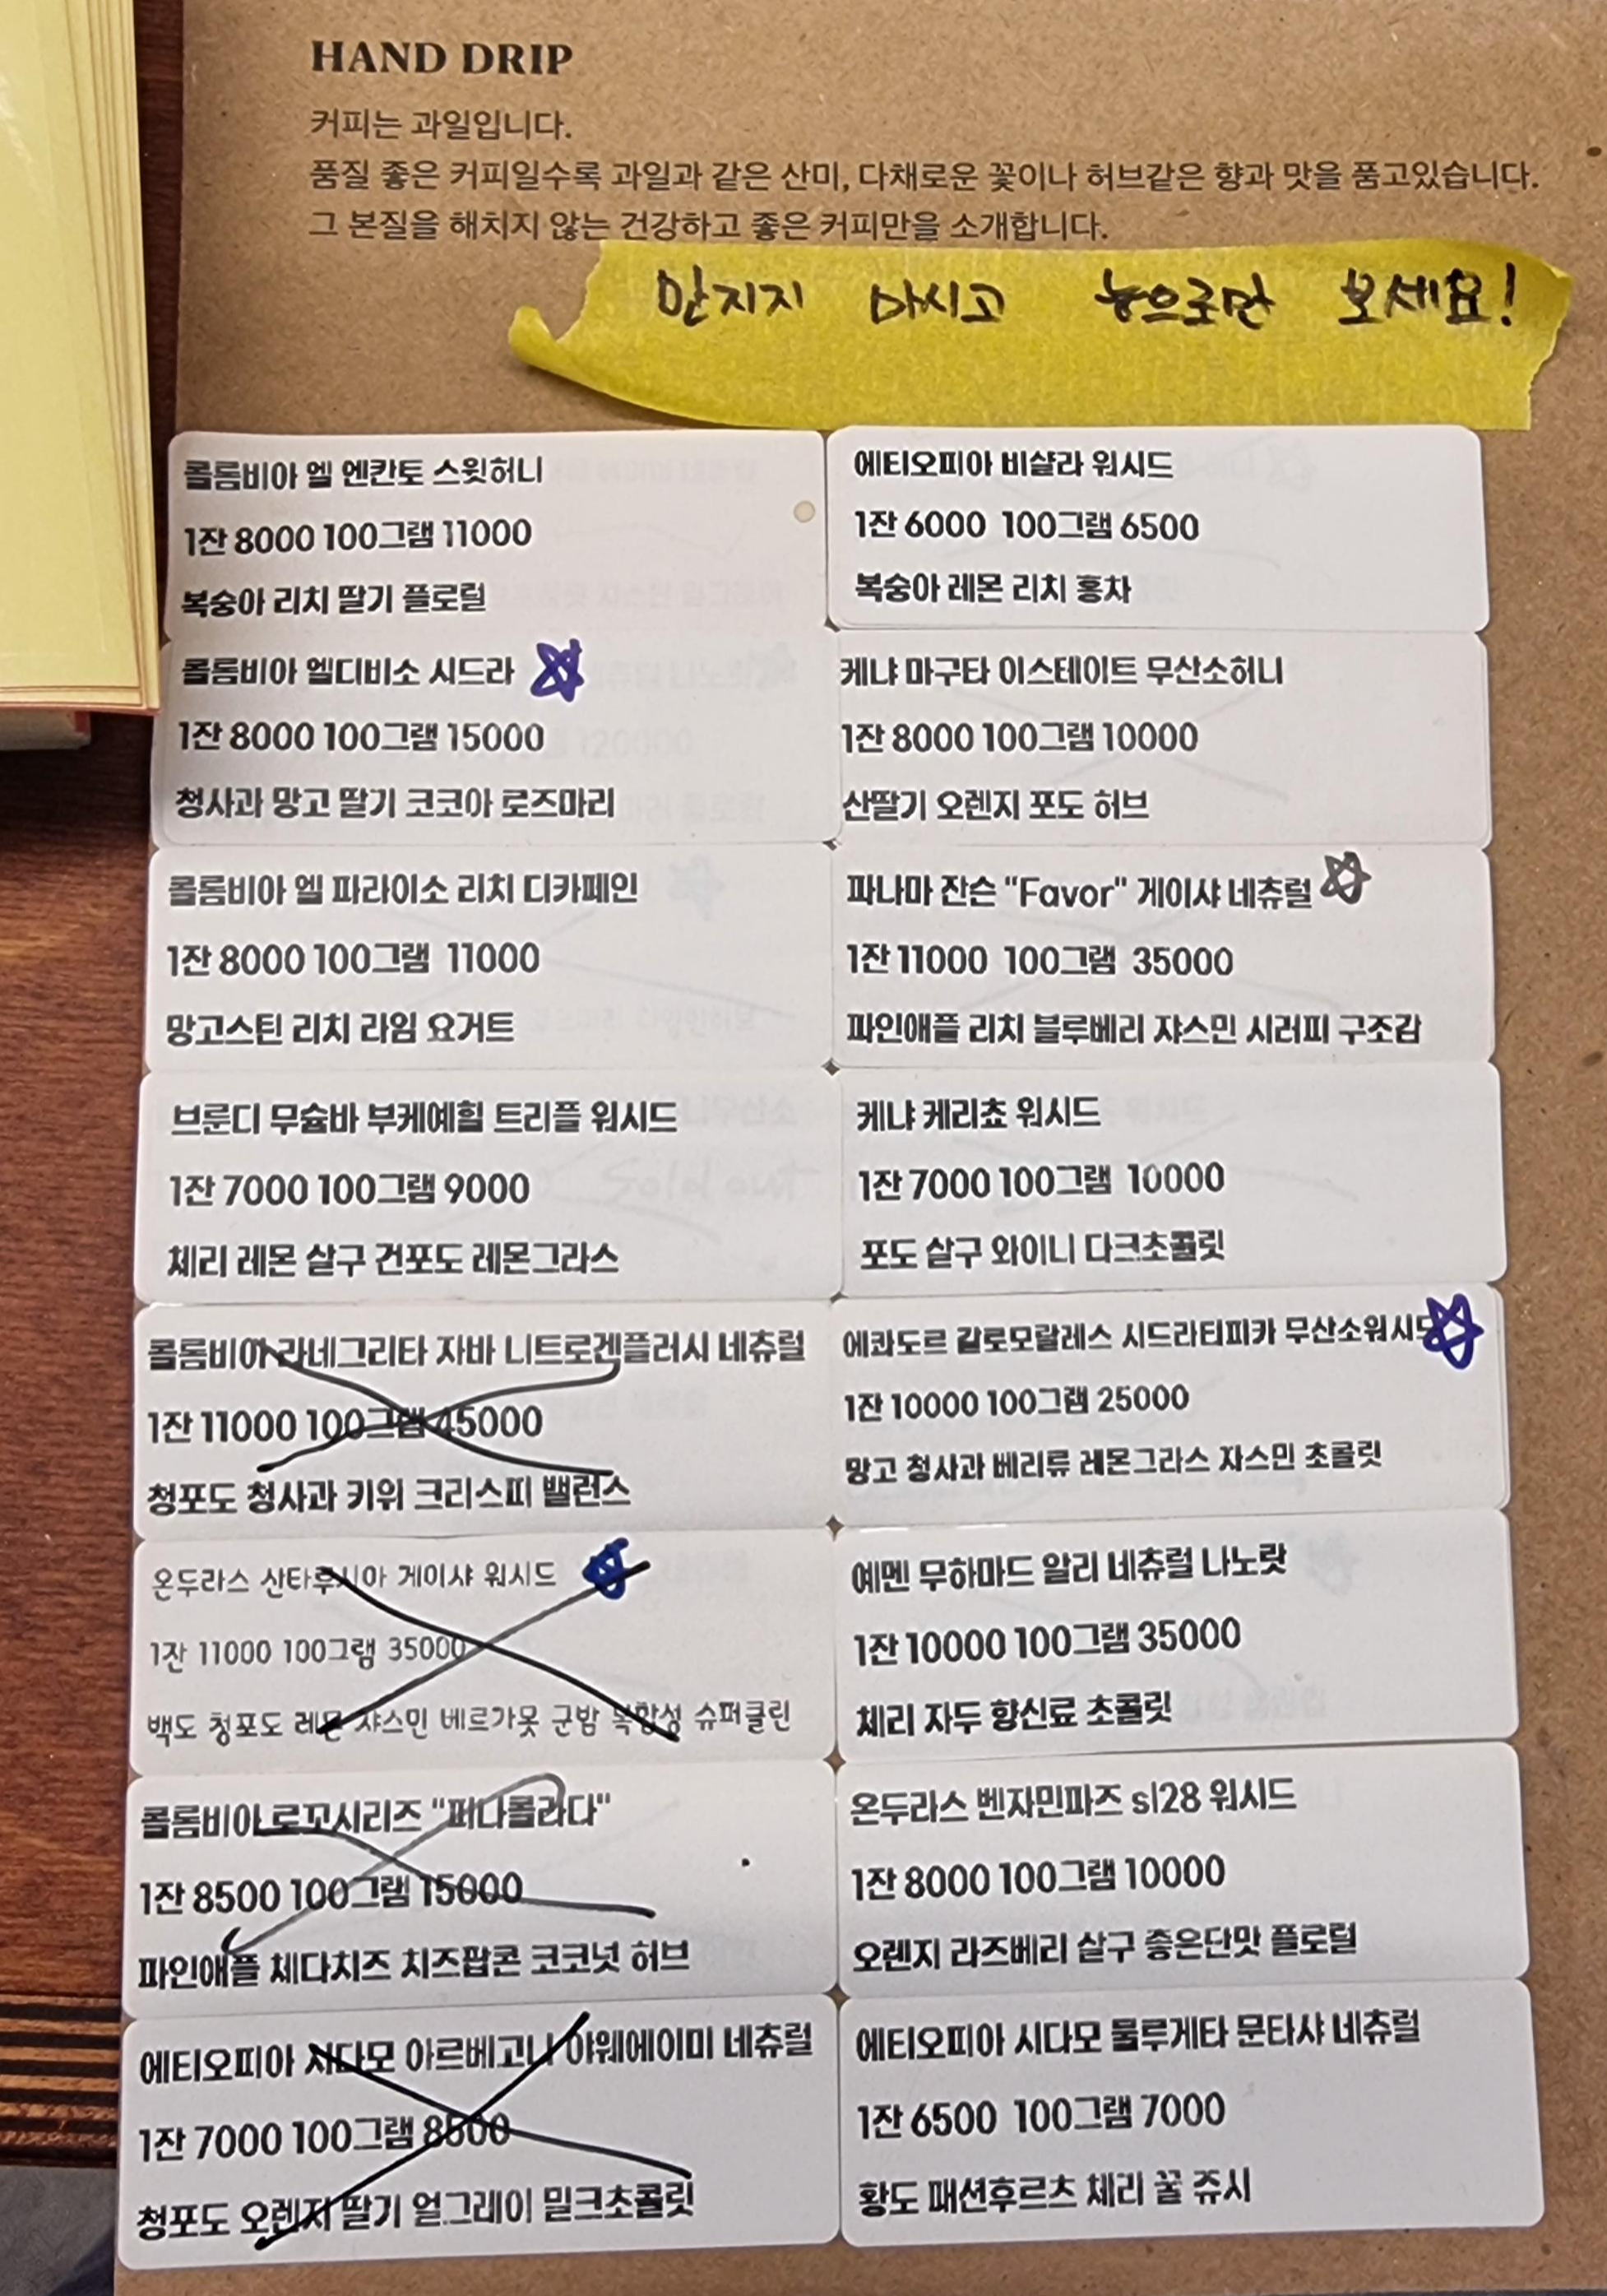 HAND DRIP
커피는 과일입니다.
품질 좋은 커피일수록 과일과 같은 산미, 다채로운 꽃이나 허브같은 향과 맛을 품고있습니다.
그 본질을 해치지 않는 건강하고 좋은 커피만을 소개합니다.
만지지 마시고 눈으로만 보세요!
콜롬비아 엘 엔칸토 스윗허니
1잔 8000 100그램 11000
복숭아 리치 딸기 플로럴
에티오피아 비샬라 워시드
1잔 6000 100그램 6500
복숭아 레몬 리치 홍차
콜롬비아 엘디비소 시드라
1잔 8000 100그램 15000
청사과 망고 딸기 코코아 로즈마리
케냐 마구타 이스테이트 무산소허니
1잔 8000 100그램 10000
산딸기 오렌지 포도 허브
콜롬비아 엘 파라이소 리치 디카페인
1잔 8000 100그램 11000
망고스틴 리치 라임 요거트
파나마 잔슨 "Favor" 게이샤 네츄럴
1잔 11000 100그램 35000
파인애플 리치 블루베리 쟈스민 시러피 구조감
브룬디 무슘바 부케예힐 트리플 워시드
1잔 7000 100그램 9000
체리 레몬 살구 건포도 레몬그라스
케냐 케리쵸 워시드
1잔 7000 100그램 10000
포도 살구 와이니 다크초콜릿
콜롬비아 라네그리타 자바 니트로겐플러시 네츄럴
1잔 11000 100그램 45000
청포도 청사과 키위 크리스피 밸런스
에콰도르 갈로모랄레스 시드라티피카 무산소워시드
1잔 10000 100그램 25000
망고 청사과 베리류 레몬그라스 쟈스민 초콜릿
온두라스 산타루시아 게이샤 워시드
1잔 11000 100그램 35000
백도 청포도 레몬 쟈스민 베르가못 군밤 복합성 슈퍼클린
예멘 무하마드 알리 네츄럴 나노랏
1잔 10000 100그램 35000
체리 자두 향신료 초콜릿
콜롬비아 로꼬시리즈 "퍼나콜라다"
1잔 8500 100그램 15000
파인애플 체다치즈 치즈팝콘 코코넛 허브
온두라스 벤자민파즈 sl28 워시드
1잔 8000 100그램 10000
오렌지 라즈베리 살구 좋은단맛 플로럴
에티오피아 시다모 아르베고나 야웨에이미 네츄럴
1잔 7000 100그램 8500
청포도 오렌지 딸기 얼그레이 밀크초콜릿
에티오피아 시다모 물루게타 문타샤 네츄럴
1잔 6500 100그램 7000
황도 패션후르츠 체리 꿀 쥬시